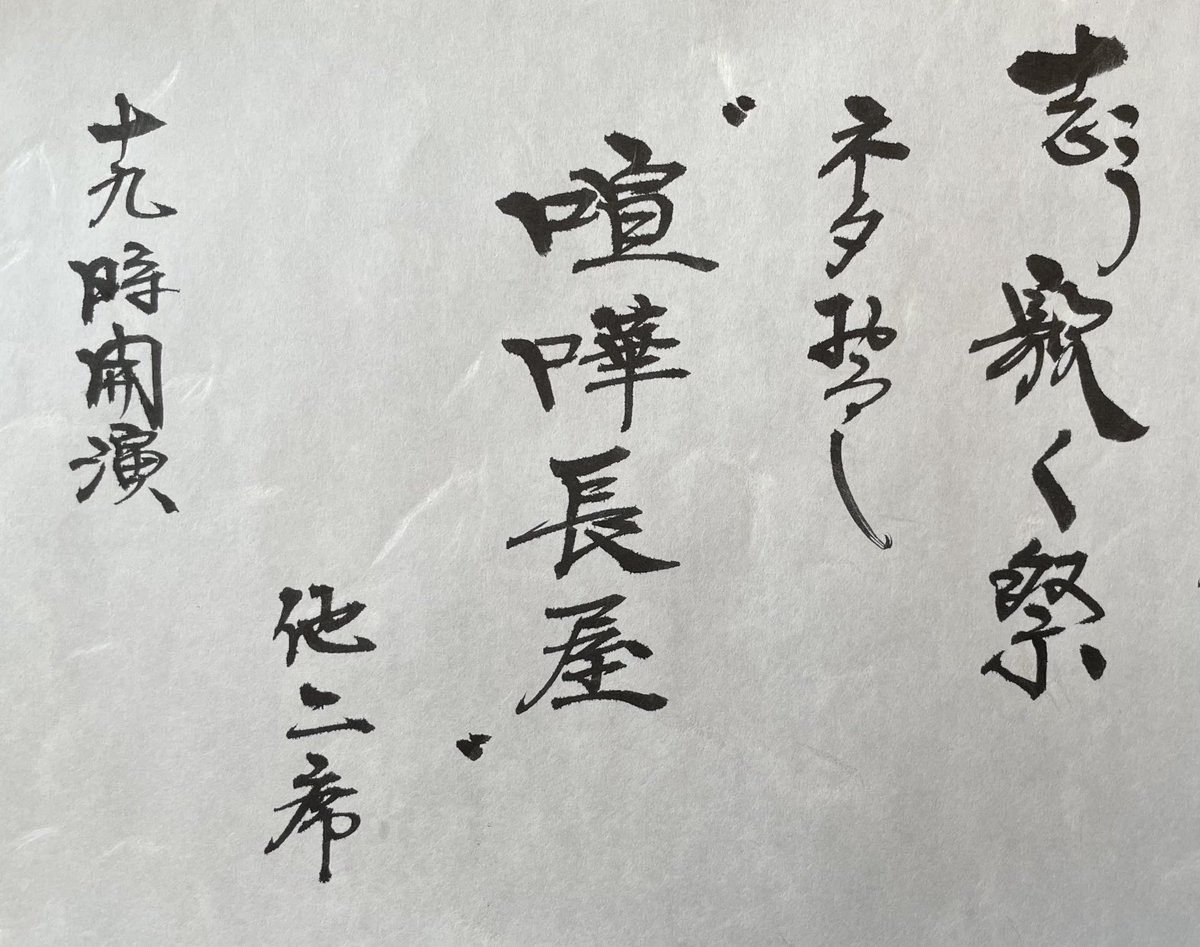 志こう く祭
ネタおろし
〝喧嘩長屋〟
他二席
十九時開演